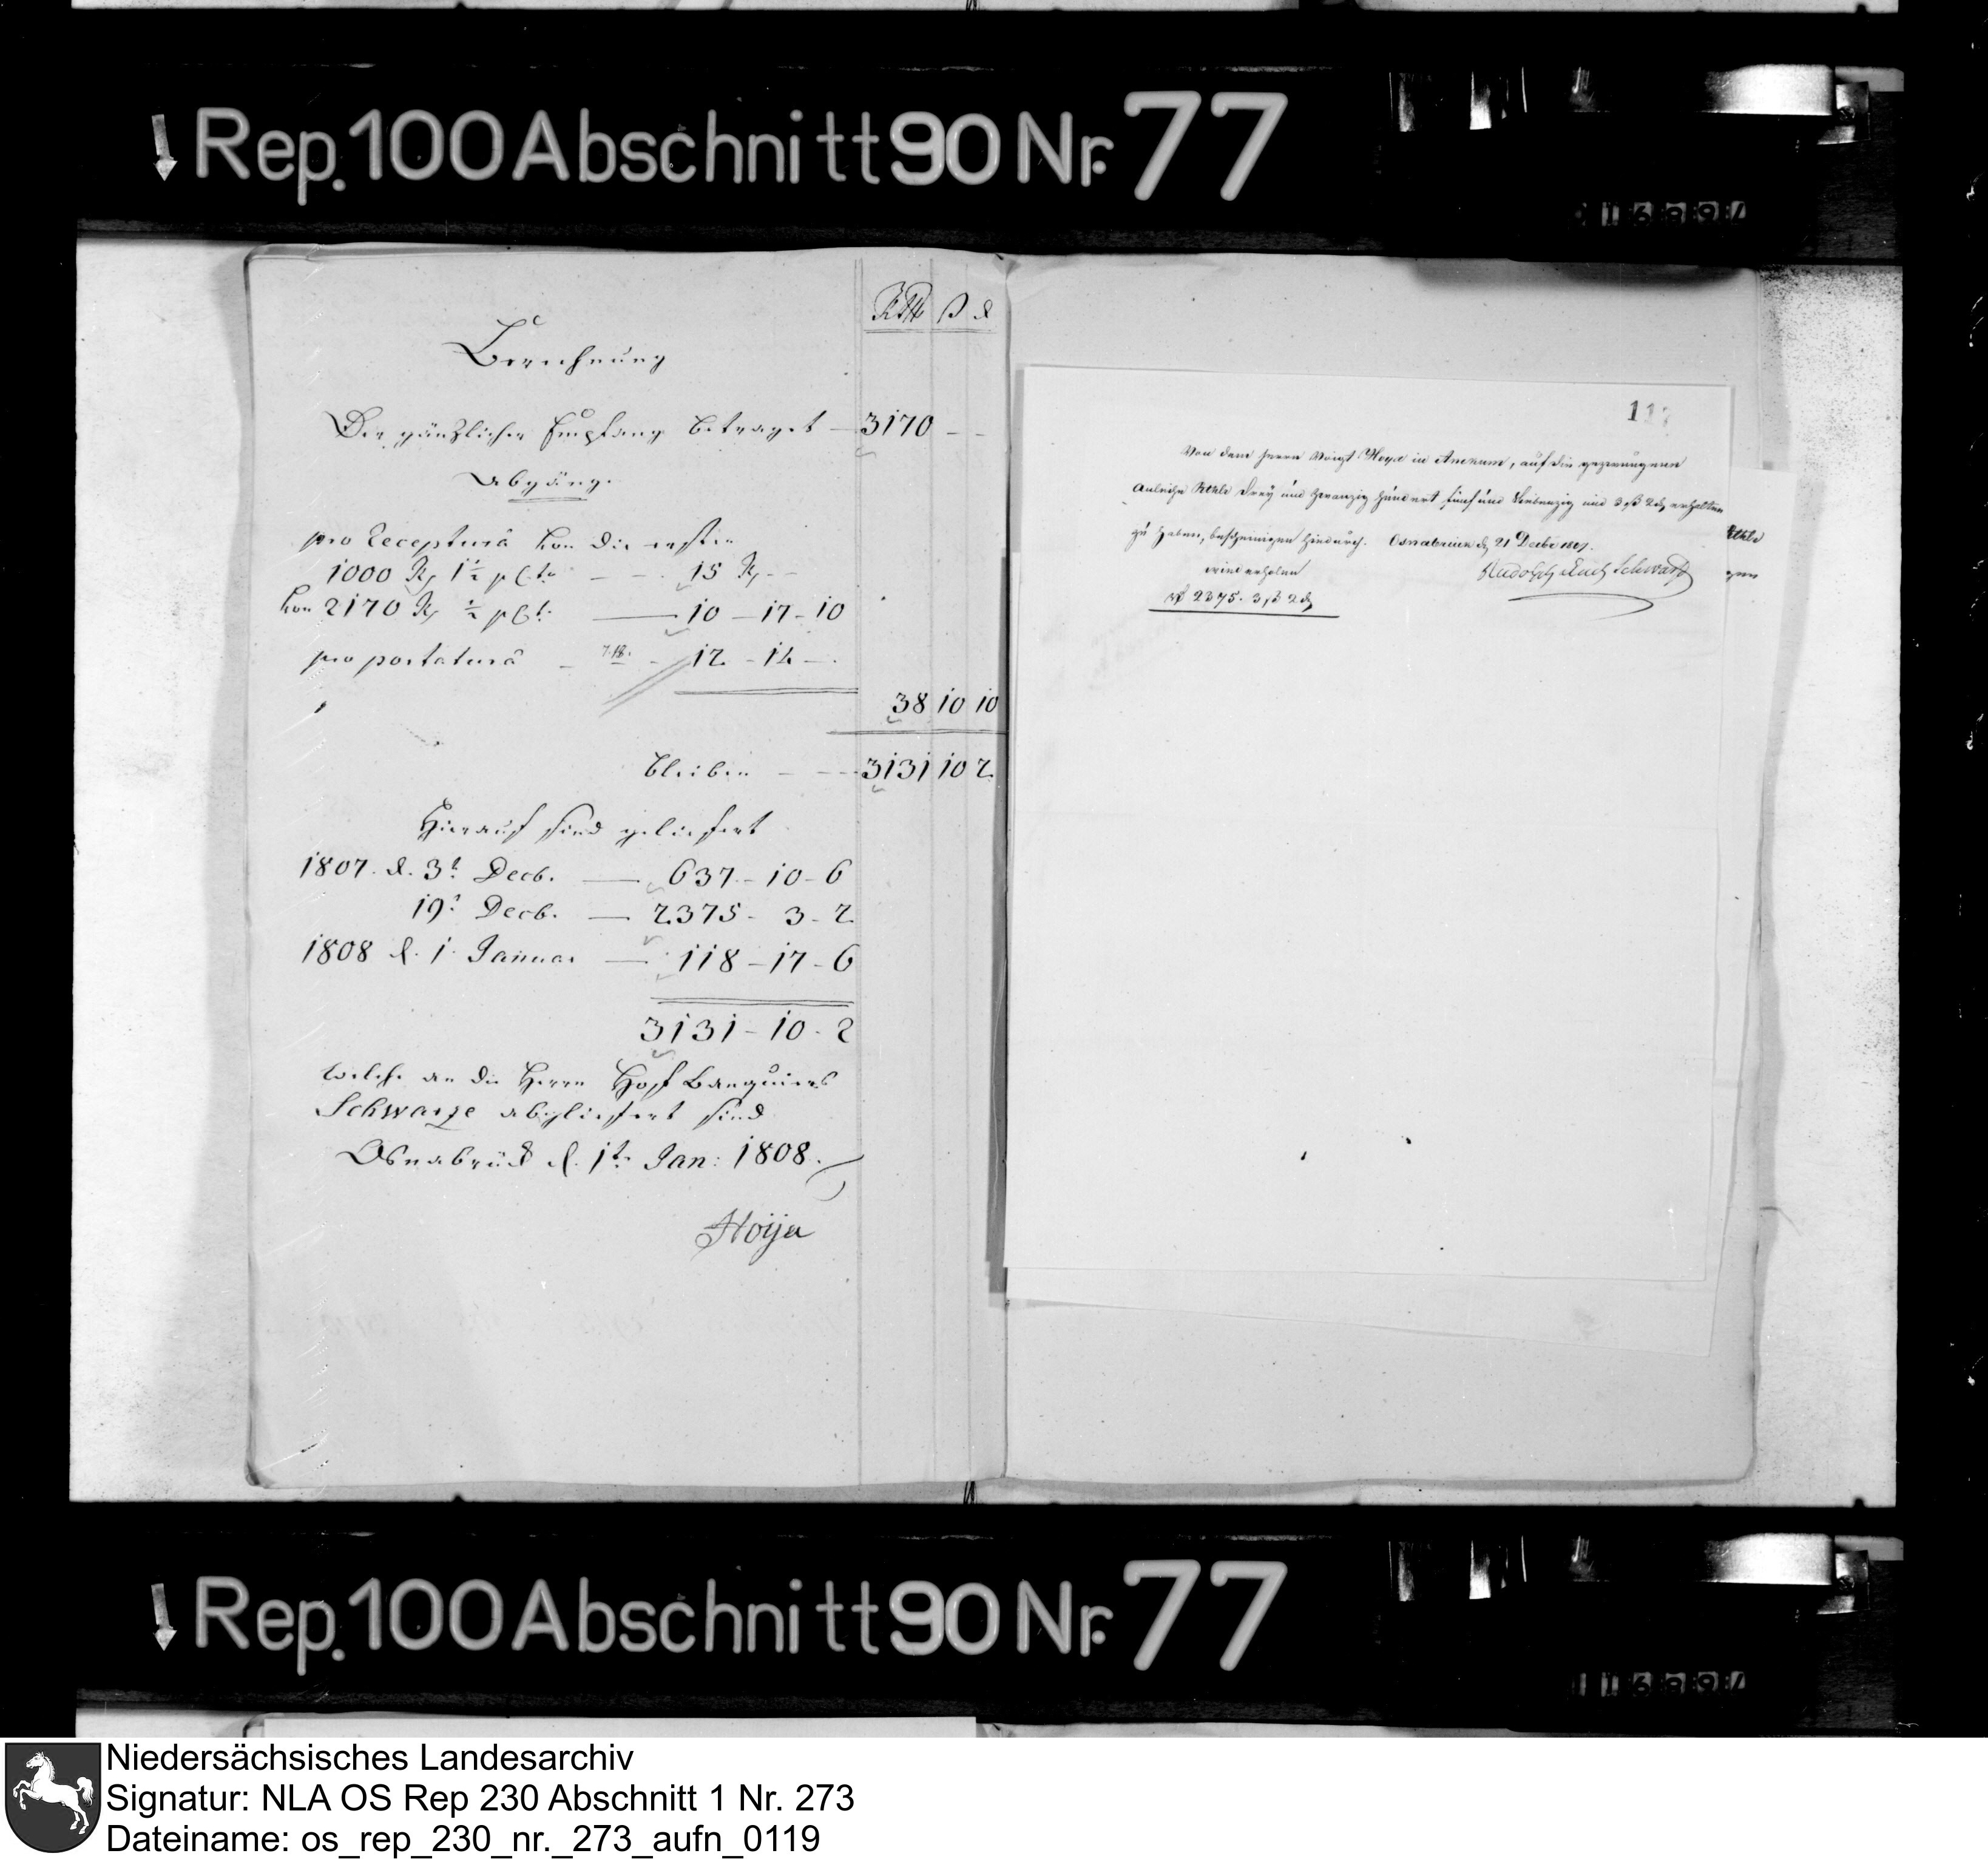 Rep. 100 Abschnitt 90 Nr. 77
Rth ß d
Berechnung
Der gänzlicher Empfang betraget — 3170 - -
Abgang.
pro Receptura von die ersten
1000 R 1½ p Ct. — 15 R - -
von 2170 R ½ p Ct. — 10 - 17 - 10
pro portatura — 12 - 14 -
38 10 10
bleiben - - - 3131 10 2
Hierauf sind geliefert
1807 d. 3t Decb. — 637 - 10 - 6
19t Decb. — 2375 - 3 - 2
1808 d. 1 Januar — 118 - 17 - 6
3131 - 10 - 2
welche an die Herrn Hoff Banquiers
Schwarze abgeliefert sind
Osnabrück d. 1te Jan: 1808.
Hoija
Von dem Herrn Voigt Hoya in Ankum, auf die gezwungene
Anleihe Rthlr Drey und Zwanzig hundert fünf und Siebenzig und 3 ß 2 d erhalten
zu haben, bescheinigen hiedurch. Osnabrück d 21 Decbr 1807.
wiederholen
2375. 3 ß 2 d
Schwartz
Rep. 100 Abschnitt 90 Nr. 77
Niedersächsisches Landesarchiv
Signatur: NLA OS Rep 230 Abschnitt 1 Nr. 273
Dateiname: os_rep_230_nr._273_aufn_0119